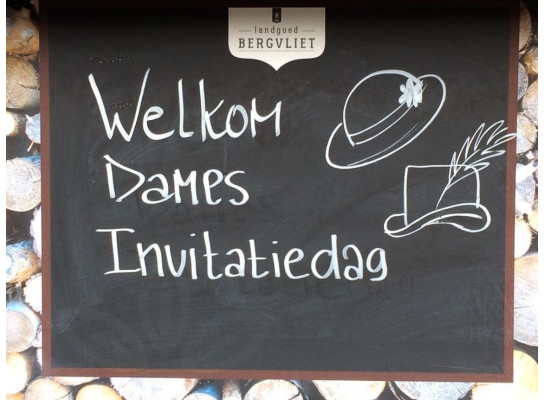 landgoed
BERGVLIET
Welkom
Dames
Invitatiedag